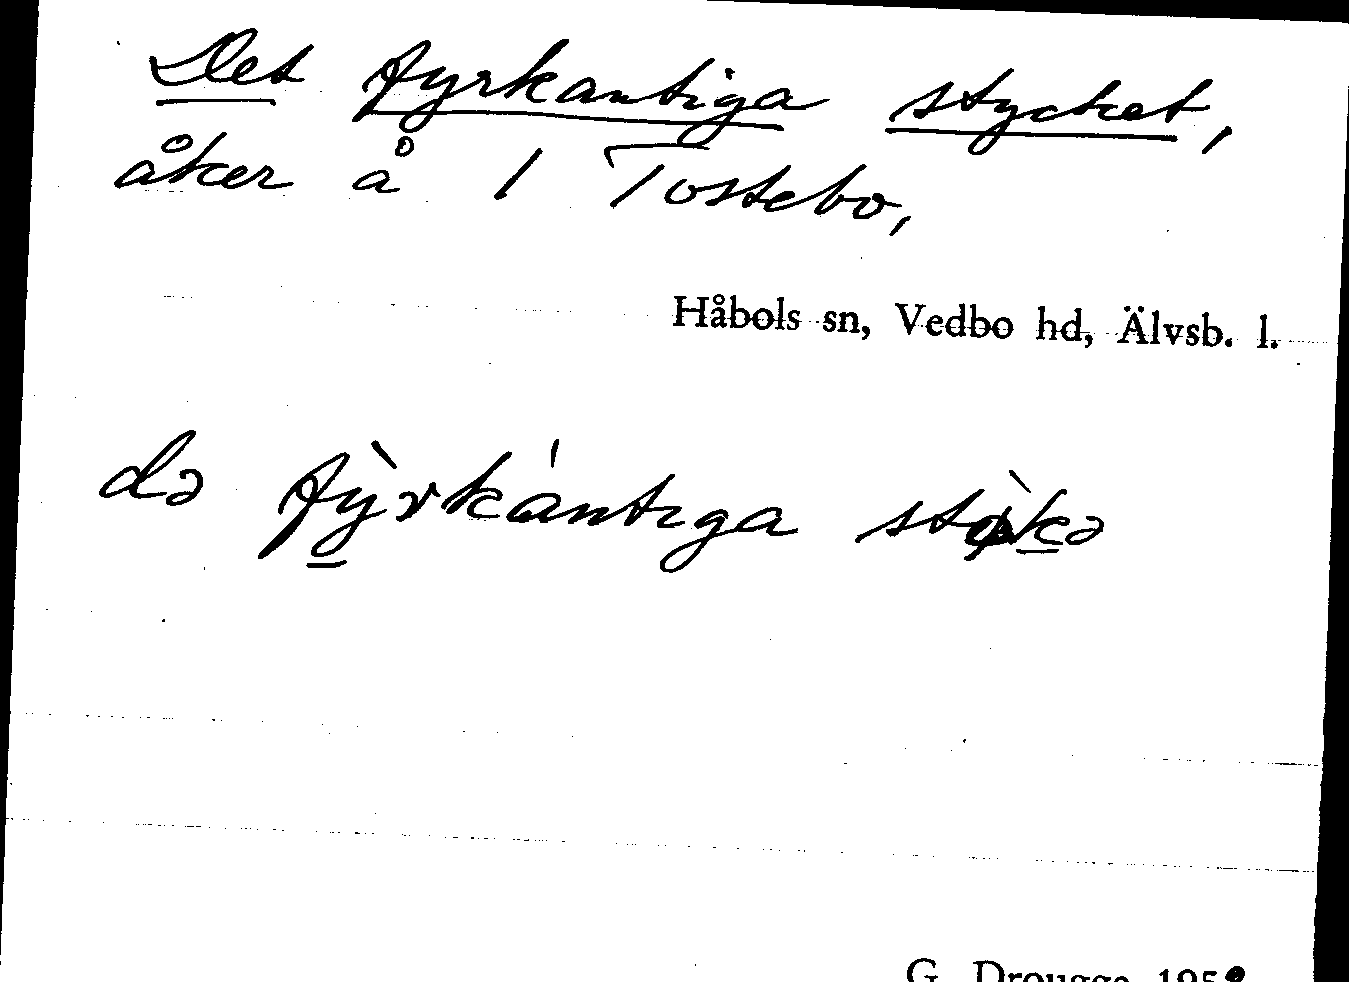 Det fyrkantiga stycket,
åker å 1 Tostebo,
Håbols sn, Vedbo hd, Älvsb. l.
də fỳ̠rkántıga stø̀k̠ə
G. Drougge 195